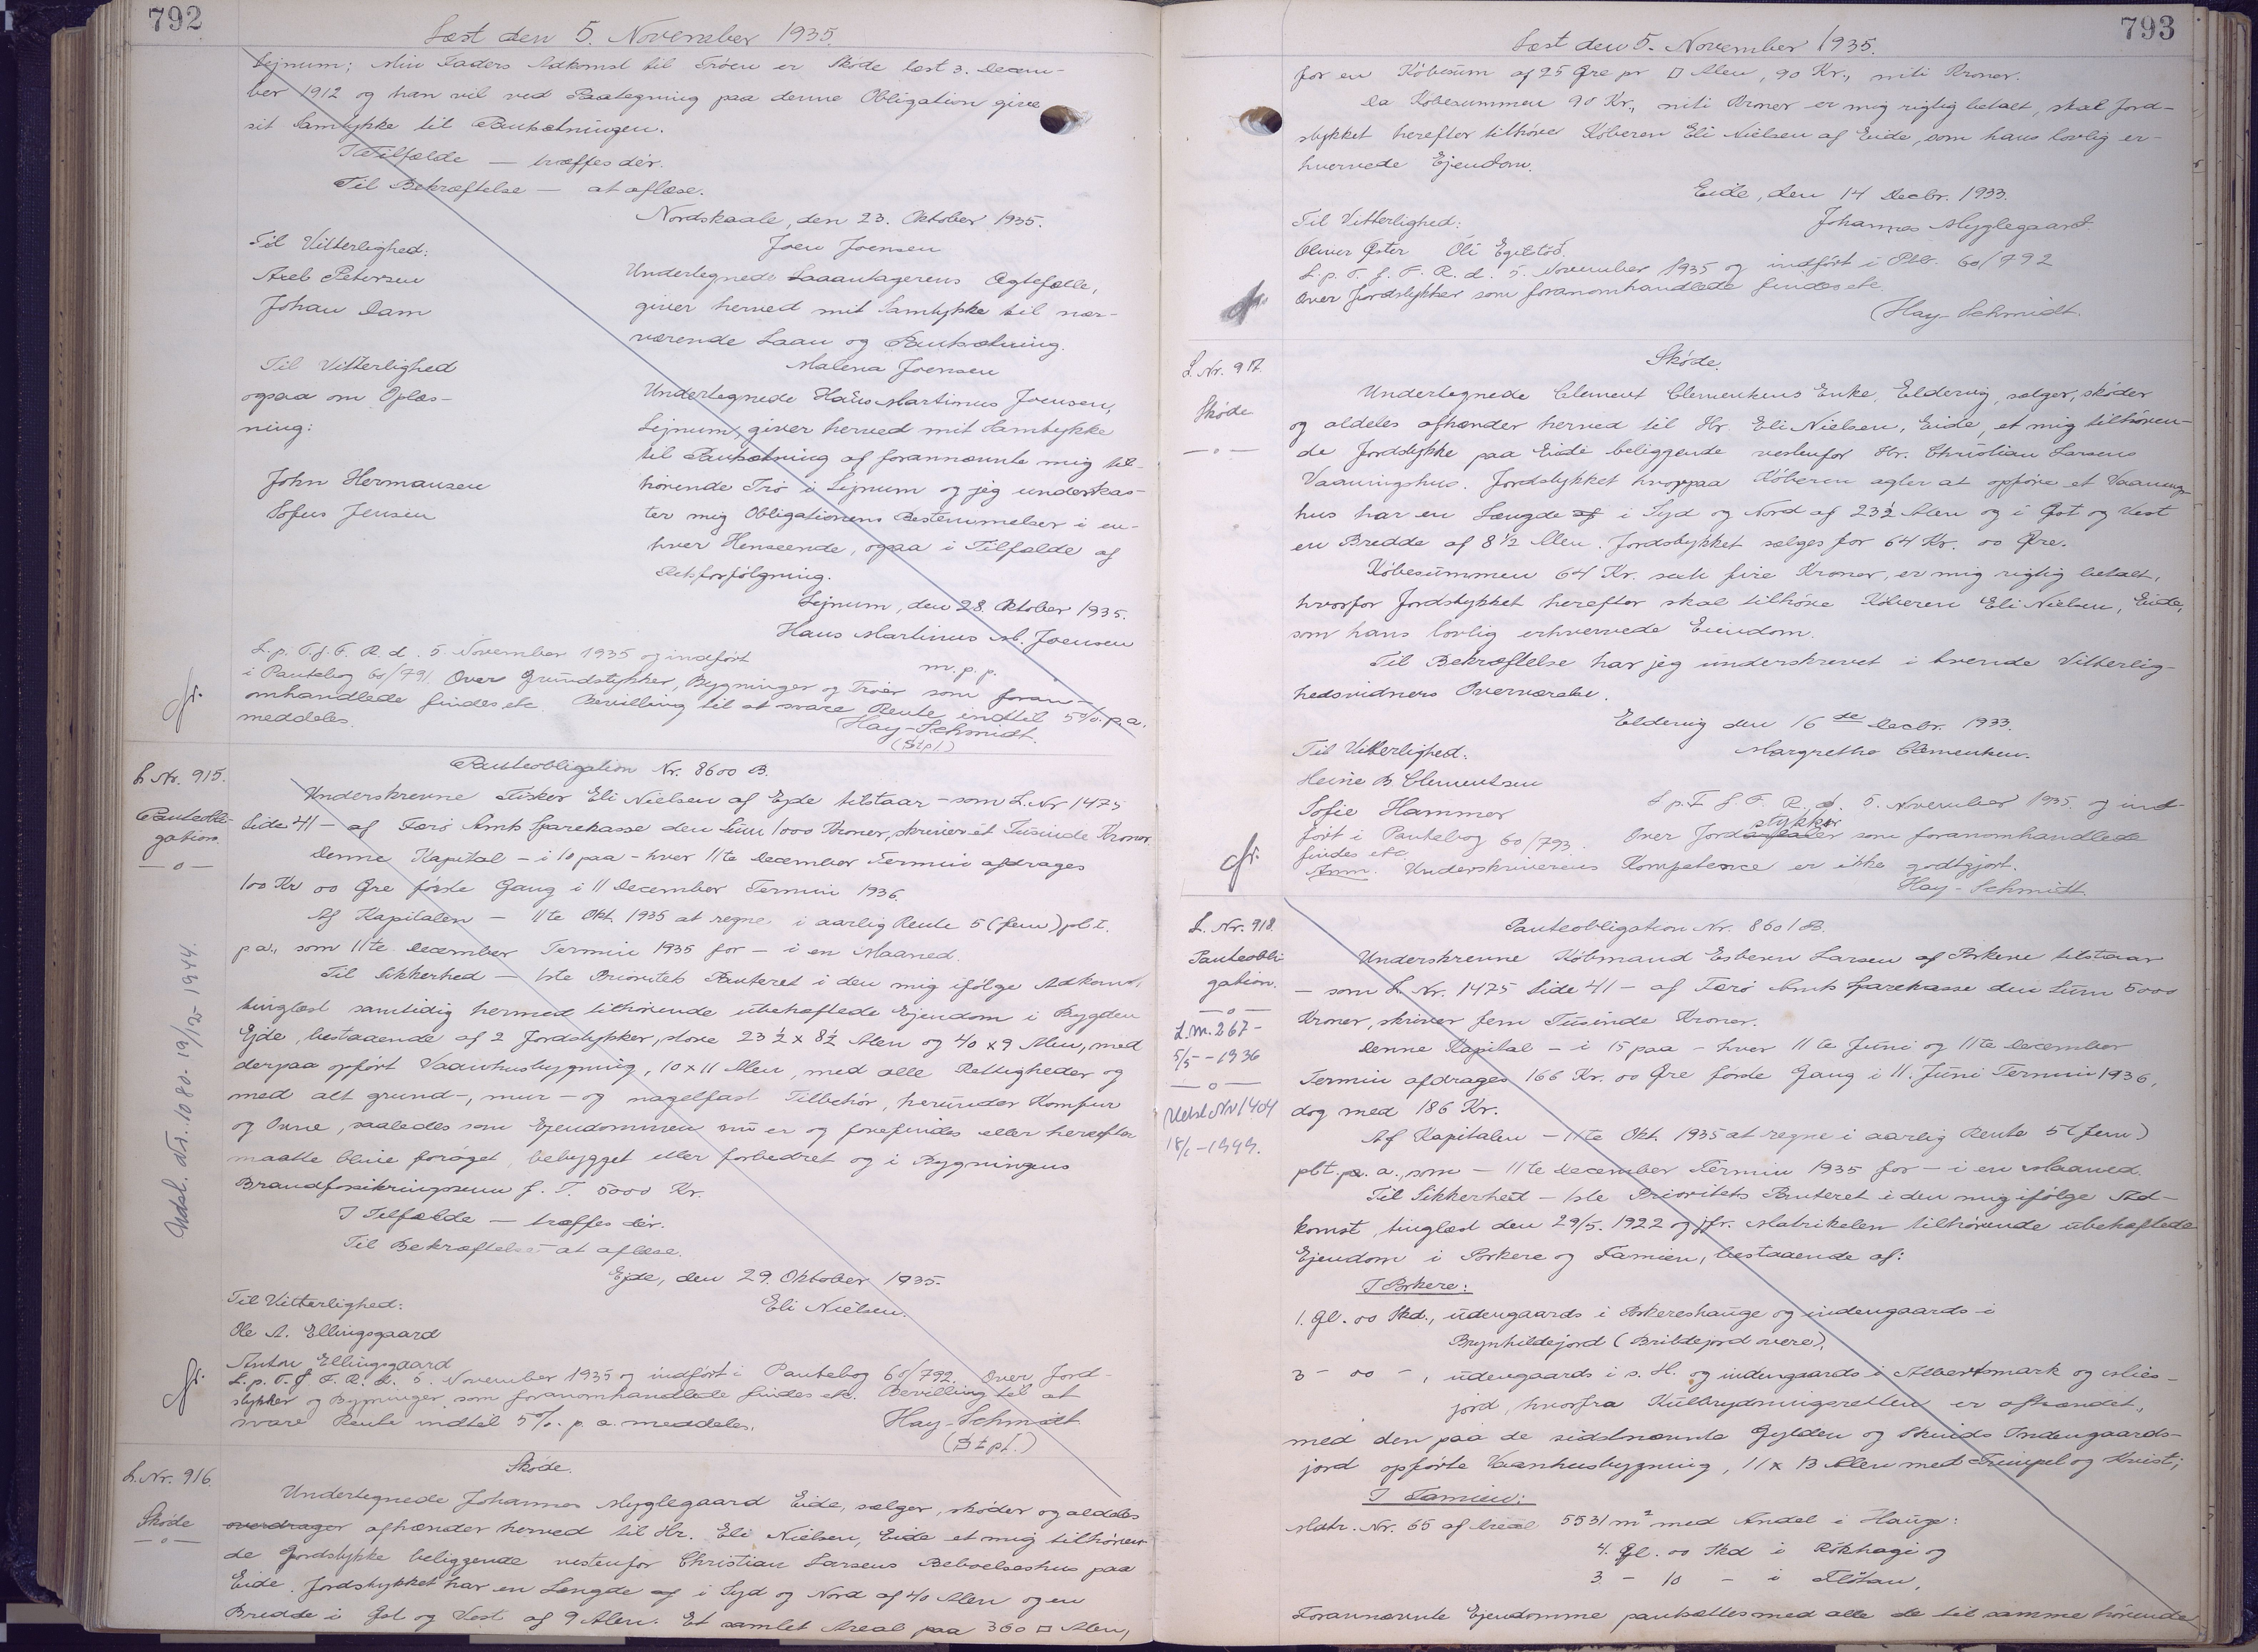 792
Læst den 5. November 1935.
Lejnum; Min Faders Adkomst til Tróen er Skøde læst 3. Decem-
ber 1912 og han vil ved Paategning paa denne Obligation give
sit Samtykke til Pantsætningen.
I Tilfælde — træffes dér.
Til Bekræftelse — at aflæse.
Nordskaale, den 23. Oktober 1935.
Joen Joensen
Til Vitterlighed:
Axel Petersen
Johan Dam
Undertegnede Laaantagerens Ægtefælle,
giver herved mit Samtykke til nær-
værende Laan og Pantsætning.
Malena Joensen
Til Vitterlighed
ogsaa om Oplæs-
ning:
John Hermansen
Sofus Jensen
Undertegnede Hans Martinus Joensen,
Lejnum, giver herved mit Samtykke
til Pantsætning af forannævnte mig til-
hørende Tró i Lejnum og jeg underkas-
ter mig Obligationens Bestemmelser i en-
hver Henseende, ogsaa i Tilfælde af
Retsforfólgning.
Lejnum, den 28. Oktober 1935.
Hans Martinus M. Joensen
m.p.p.
L.p.T.f.F.R.d. 5. November 1935 og indført
i Pantebog 60/791. Over Grundstykker, Bygninger og Tróer som foran-
omhandlede findes etc. Bevilling til at svare Rente indtil 5%. p.a.
meddeles.
Hay-Schmidt.
(Stpl.)
L Nr. 915.
Panteobli-
gation.
—o—
Udsl. Nr. 1080 - 19/2 - 1944.
Panteobligation Nr. 8600 B.
Underskrevne Fisker Eli Nielsen af Ejde tilstaar – som L.Nr 1475
Side 41 – af Færø Amts Sparekasse den Sum 1000 Kroner, skriver ét Tusinde Kroner.
Denne Kapital – i 10 paa – hver 11te December Termin afdrages
100 Kr 00 Øre første Gang i 11 December Termin 1936.
Af Kapitalen – 11te Okt. 1935 at regne i aarlig Rente 5 (fem) pCt.
p.a., som 11te December Termin 1935 for – i en Maaned.
Til Sikkerhed – 1ste Prioritets Panteret i den mig ifølge Adkomst,
tinglæst samtidig hermed tilhørende ubehæftede Ejendom i Bygden
Ejde, bestaaende af 2 Jordstykker, store 23½ x 8½ Alen og 40 x 9 Alen, med
derpaa opført Vaanhusbygning, 10 x 11 Alen, med alle Rettigheder og
med alt grund-, mur- og nagelfast Tilbehør, herunder Komfur
og Ovne, saaledes som Ejendommen nu er og forefindes eller herefter
maatte blive forøget, bebygget eller forbedret og i Bygningens
Brandforsikringssum f. T. 5000 Kr.
I Tilfælde – træffes dér.
Til Bekræftelse – at aflæse.
Ejde, den 29. Oktober 1935.
Til Vitterlighed:
Eli Nielsen.
Ole A. Ellingsgaard
Anton Ellingsgaard
L.p.T.f F.R.d. 5. November 1935 og indført i Pantebog 60/792. Over Jord-
stykker og Bygninger, som foranomhandlede findes etc. Bevilling til at
svare Rente indtil 5%. p. a. meddeles.
Hay-Schmidt
(Stpl.)
L.Nr. 916.
Skøde
—o—
Skøde.
Undertegnede Johannes Myglegaard Eide, sælger, skøder og aldeles
overdrager afhænder herved til Hr. Eli Nielsen, Eide et mig tilhøren-
de Jordstykke beliggende vestenfor Christian Larsens Beboelseshus paa
Eide. Jordstykket har en Længde af i Syd og Nord af 40 Alen og en
Bredde i Øst og Vest af 9 Alen. Et samlet Areal paa 360 □ Alen,
793
Læst den 5. November 1935.
for en Købesum af 25 Øre pr □ Alen, 90 Kr., niti Kroner.
Da Købesummen 90 Kr., niti Kroner er mig rigtig betalt, skal Jord-
stykket herefter tilhøre Køberen Eli Nielsen af Eide, som hans lovlig er-
hvervede Ejendom.
Eide, den 14 Decbr. 1933.
Til Vitterlighed:
Johannes Myglegaard.
Oliver Øster Óli Egilstoð.
L.p.T.f.F.R.d. 5. November 1935 og indført i Ptb. 60/792
Over Jordstykker som foranomhandlede findes etc.
Hay-Schmidt.
L. Nr. 917.
Skøde
—o—
Skøde.
Undertegnede Clement Clementsens Enke, Eldevig, sælger, skøder
og aldeles afhænder herved til Hr Eli Nielsen, Eide, et mig tilhøren-
de Jordstykke paa Eide beliggende vestenfor Hr. Christian Larsens
Vaaningshus. Jordstykket hvorpaa Køberen agter at opføre et Vaanings-
hus har en Længde af i Syd og Nord af 23½ Alen og i Øst og Vest
en Bredde af 8½ Alen. Jordstykket sælges for 64 Kr. 00 Øre.
Købesummen 64 Kr. seksti fire Kroner, er mig rigtig betalt,
hvorfor Jordstykket herefter skal tilhøre Køberen Eli Nielsen, Eide,
som hans lovlig erhvervede Eiendom.
Til Bekræftelse har jeg underskrevet i tvende Vitterlig-
hedsvidners Overværelse.
Eldevig den 16de Decbr. 1933.
Til Vitterlighed:
Margretha Clementsen.
Heine B. Clementsen
Sofie Hammer
L.p.T f. F. R. d. 5. November 1935. og ind-
ført i Pantebog 60/793. Over Jordstykker som foranomhandlede
findes etc
Anm. Underskriverens Kompetence er ikke godtgjort.
Hay-Schmidt.
L. Nr. 918.
Panteobli-
gation.
—o—
L.Nr. 267 -
5/5 - 1936
—o—
Udsl. Nr 1404
18/1 - 1949.
Panteobligation Nr. 8601 B.
Underskrevne Købmand Esbern Larsen af Porkere tilstaar
– som L. Nr. 1475 Side 41 – af Færø Amts Sparekasse den Sum 5000
Kroner, skriver fem Tusinde Kroner.
Denne Kapital – i 15 paa – hver 11te Juni og 11te December
Termin afdrages 166 Kr. 00 Øre første Gang i 11. Juni Termin 1936,
dog med 186 Kr.
Af Kapitalen – 11te Okt. 1935 at regne i aarlig Rente 5 (fem)
pCt. p. a., som – 11te December Termin 1935 for – i en Maaned.
Til Sikkerhed – 1ste Prioritets Panteret i den mig ifølge Ad-
komst, tinglæst den 29/5. 1922 og jfr. Matrikelen tilhørende ubehæftede
Ejendom i Porkere og Famien, bestaaende af:
I Porkere:
1. Gl. 00 Skd., udengaards i Porkereshauge og indengaards i
Brynhildejord (Brildejord øvere),
3 – 00 – , udengaards i s. H. og indengaards i Albertsmark og
jord, hvorfra Kulbrydningsretten er afhændet,
med den paa de sidstnævnte Gylden og Skinds Indengaards-
jord opførte Vaanhusbygning, 11 x 13 Alen med Frimpel og Kvist;
I Famien:
Matr. Nr. 65 af Areal 5531 m² med Andel i Hauge:
4. Gl. 00 Skd i Rókhagi og
3 – 10 – i Flótan,
Forannævnte Ejendomme pantsættes med alle de til samme hørende